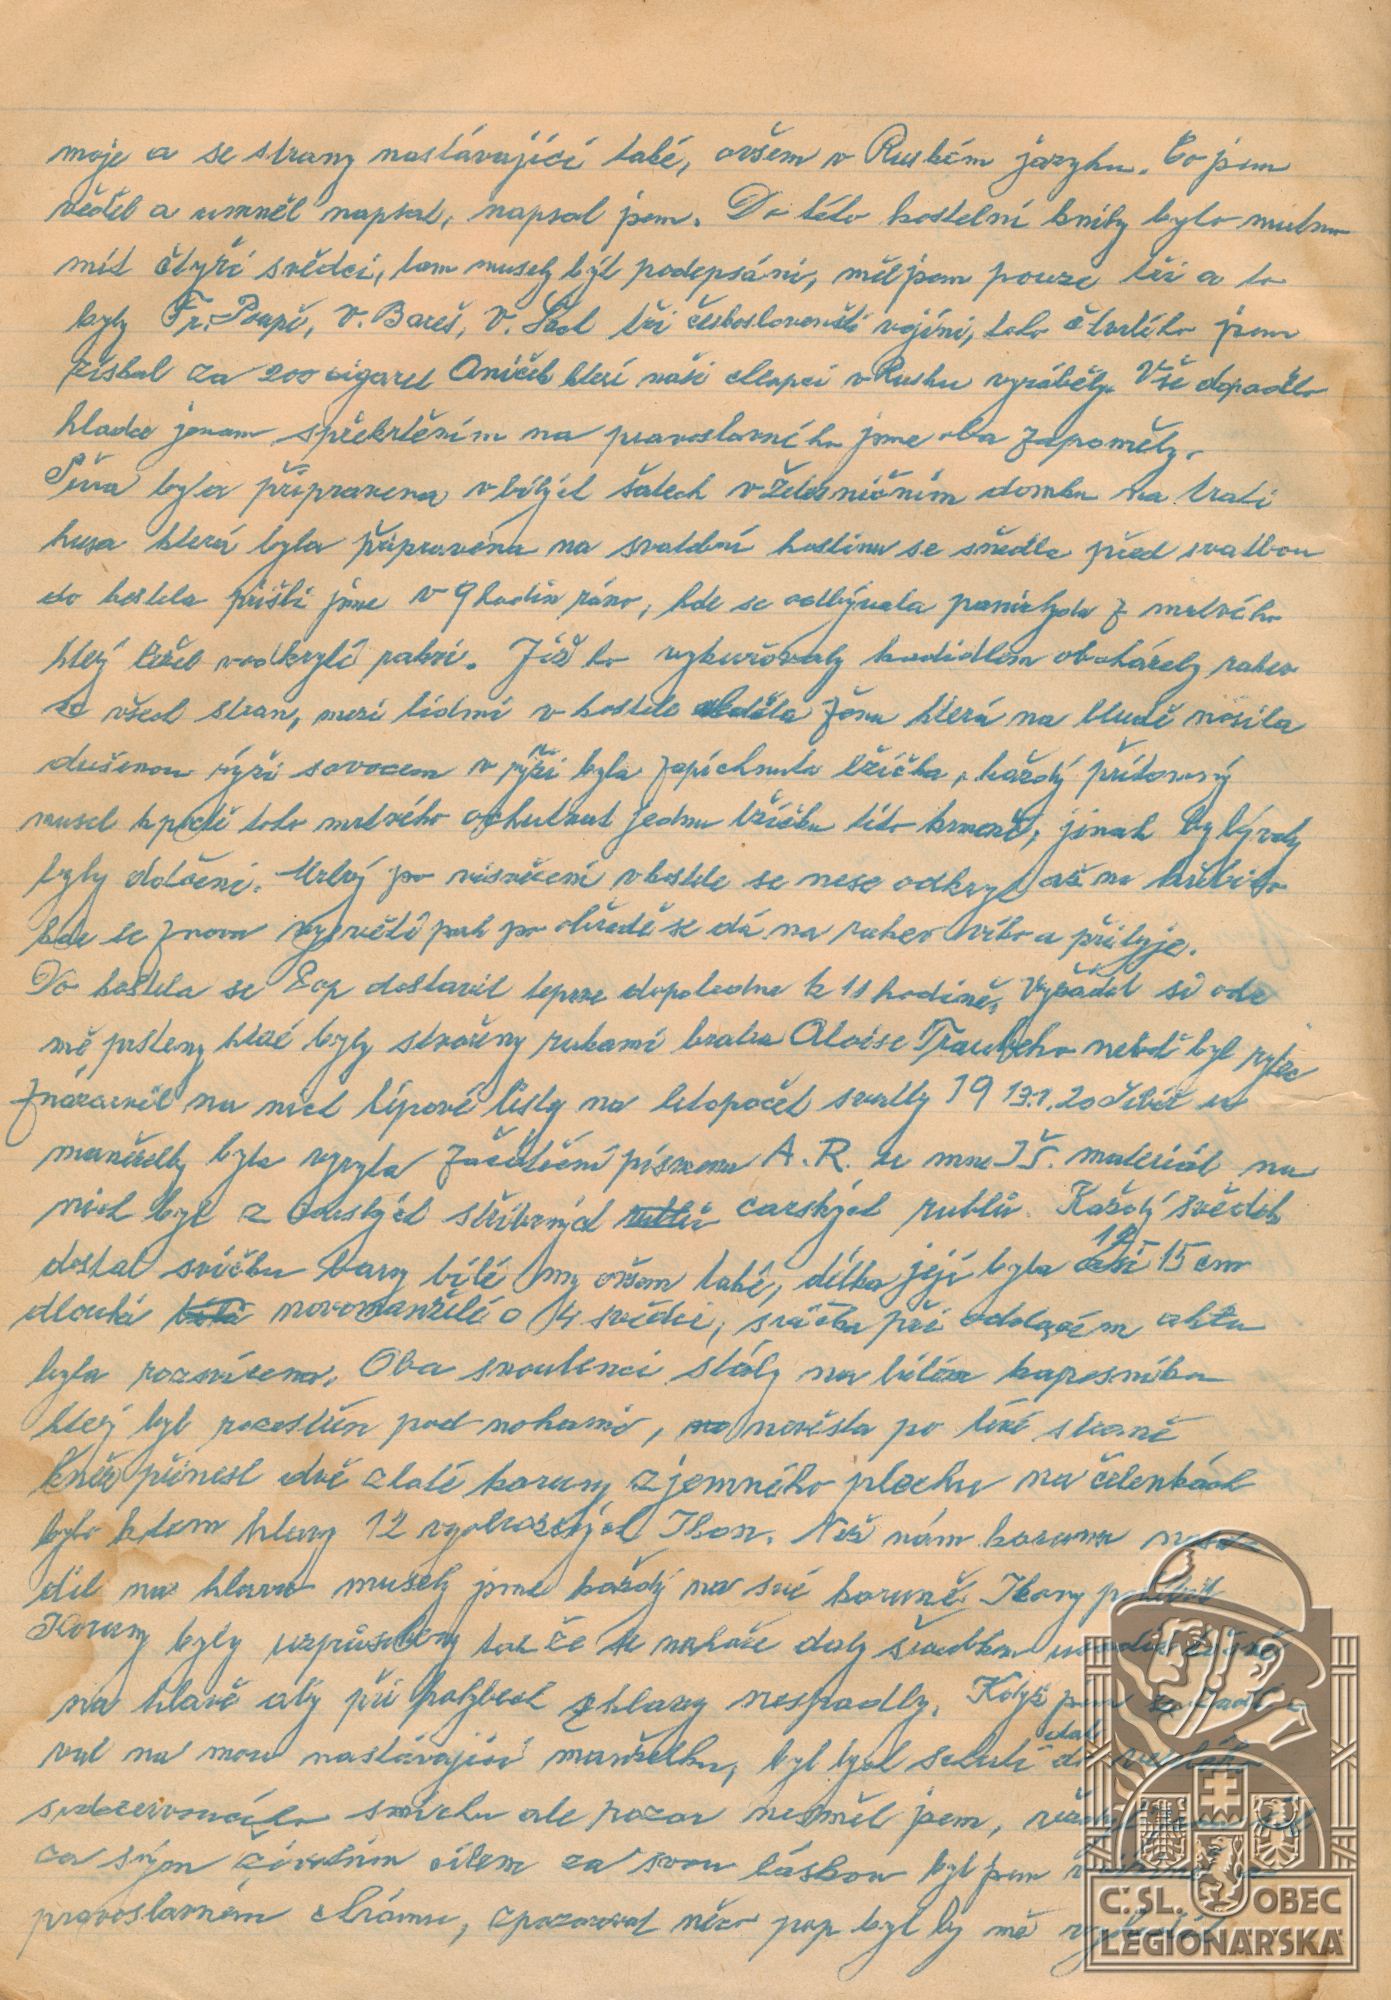 moje a se strany nastávající také, ovšem v Ruském jazyku. Co jsem
věděl a umněl napsat, napsal jsem. Do této kostelní knihy bylo nutno
mít čtyři svědci, tam musely být podepsáni, měl jsem pouze tři a to
byly Fr. Poupě, V. Bareš, V. tři českoslovenští vojíni, toho čtvrtého jsem
získal za 200 cigaret Aniček kterí naši chlapci v Rusku vyráběly. Vše dopadlo
hladce jenom spřekrtěním na pravoslavného jsme oba zapoměly.
byla připravena v bílých šatech v železničním domku na trati
husa která byla připravena na svatební hostinu se snědla před svatbou
do kostela přišli jsme v 9 hodin ráno, kde se odbývala panichyda z mrtvého
který ležel vodkrylí rakvi. Již ho vykuřovaly kadidlem obcházely rakev
se všech stran, mezi lidmi v kostele žena která na bludě nosila
dušenou rýži sovocem v rýži byla zapíchnuta lžička, každý přítomný
musel kpoctě toho mrtvého ochutnat jednu lžičku této krmě, jinak by bývaly
byly dotčeni. Mrtvý po vysvěcení vkostele se nese odkryt až na hřbitov
kde se znova vysvětí pak po obřadě se dá na rakev víko a přibyje.
Do kostela se Pop dostavil teprve dopoledne k 11 hodině. Vyžádal si ode
mě prsteny které byly stvořeny rukami bratra Aloise Traubeho neboť byl rytec
znázornil na nich lípové listy na letopočet svatby 19 13.1. 20 u
manželky byla vyryta začáteční písmena A. R. u mne J Š. materiál na
nich byl z ruských stříbrných carských rublů. Každý svědek
dostal svíčku barvy bílé my ovšem také, délka její byla 12-15 cm
dlouhá novomanželé o 4 svědci, svíčka při oddacím aktu
byla rozsvícena. Oba snoubenci stály na bílém kapesníku
který byl rozestřen pod nohami, nevěsta po levé straně
kněz přinesl dvě zlaté koruny z jemného plechu na čelenkách
bylo kolem hlavy 12 vyobrazených Ikon. Než nám korunu nasa-
dil na hlavu musely jsme každý na své koruně Ikony
Koruny byly uzpůsobeny tak že se nahoře daly šroubkem
na hlavě aby při pohybech z hlavy nespadly. Když jsem
val na mou nastávající manželku, byl bych se
srdcervoucího smíchu ale pozor nesměl jsem,
za svým životním cílem za svou láskou byl jsem
pravoslavném chrámu, zpozoroval něco pop byl by mě
Č.SL. OBEC
LEGIONÁŘSKÁ